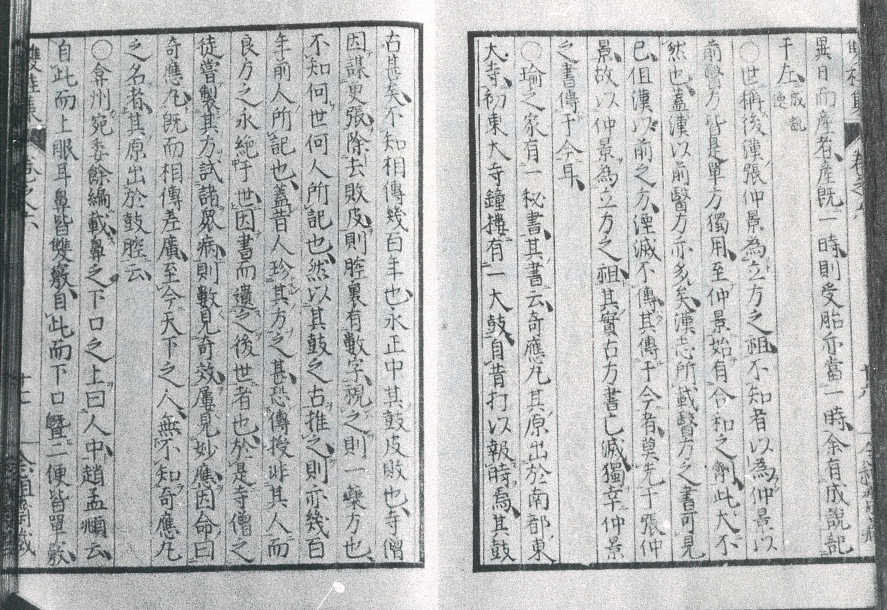 異日而產者產既一時則受胎亦當一時余有成說記
于左成說
○世稱後漢張仲景為立方之祖不知者以為仲景以
前醫方皆是單方獨用至仲景始有合和之劑此大不
然也蓋漢以前醫方亦多矣漢志所載醫方之書可見
已但漢以前之方湮滅不傳其傳于今者莫先于張仲
景故以仲景為立方之祖其實古方書亡滅獨幸仲景
之書傳于今耳
○瑜之家有一秘書其書云奇應丸其原出於南都東
大寺初東大寺鐘樓有一大鼓自昔打以報時焉其鼓
古甚矣不知相傳幾百年也永正中其鼓皮敗也寺僧
因謀更張除去敗皮則腔裏有數字視之則一藥方也
不知何世何人所記也然以其鼓之古推之則亦幾百
年前人所記也蓋昔人珍其方之甚恐傳授非其人而
良方之永絕于世因書而遺之後世者也於是寺僧之
徒嘗製其方試諸眾病則數見奇效屢見妙應因命曰
奇應丸既而相傳差廣至今天下之人無不知奇應丸
之名者其原出於鼓腔云
○弇州宛委餘編載鼻之下口之上曰人中趙孟頫云
自此而上眼耳鼻皆雙竅自此而下口暨二便皆單竅